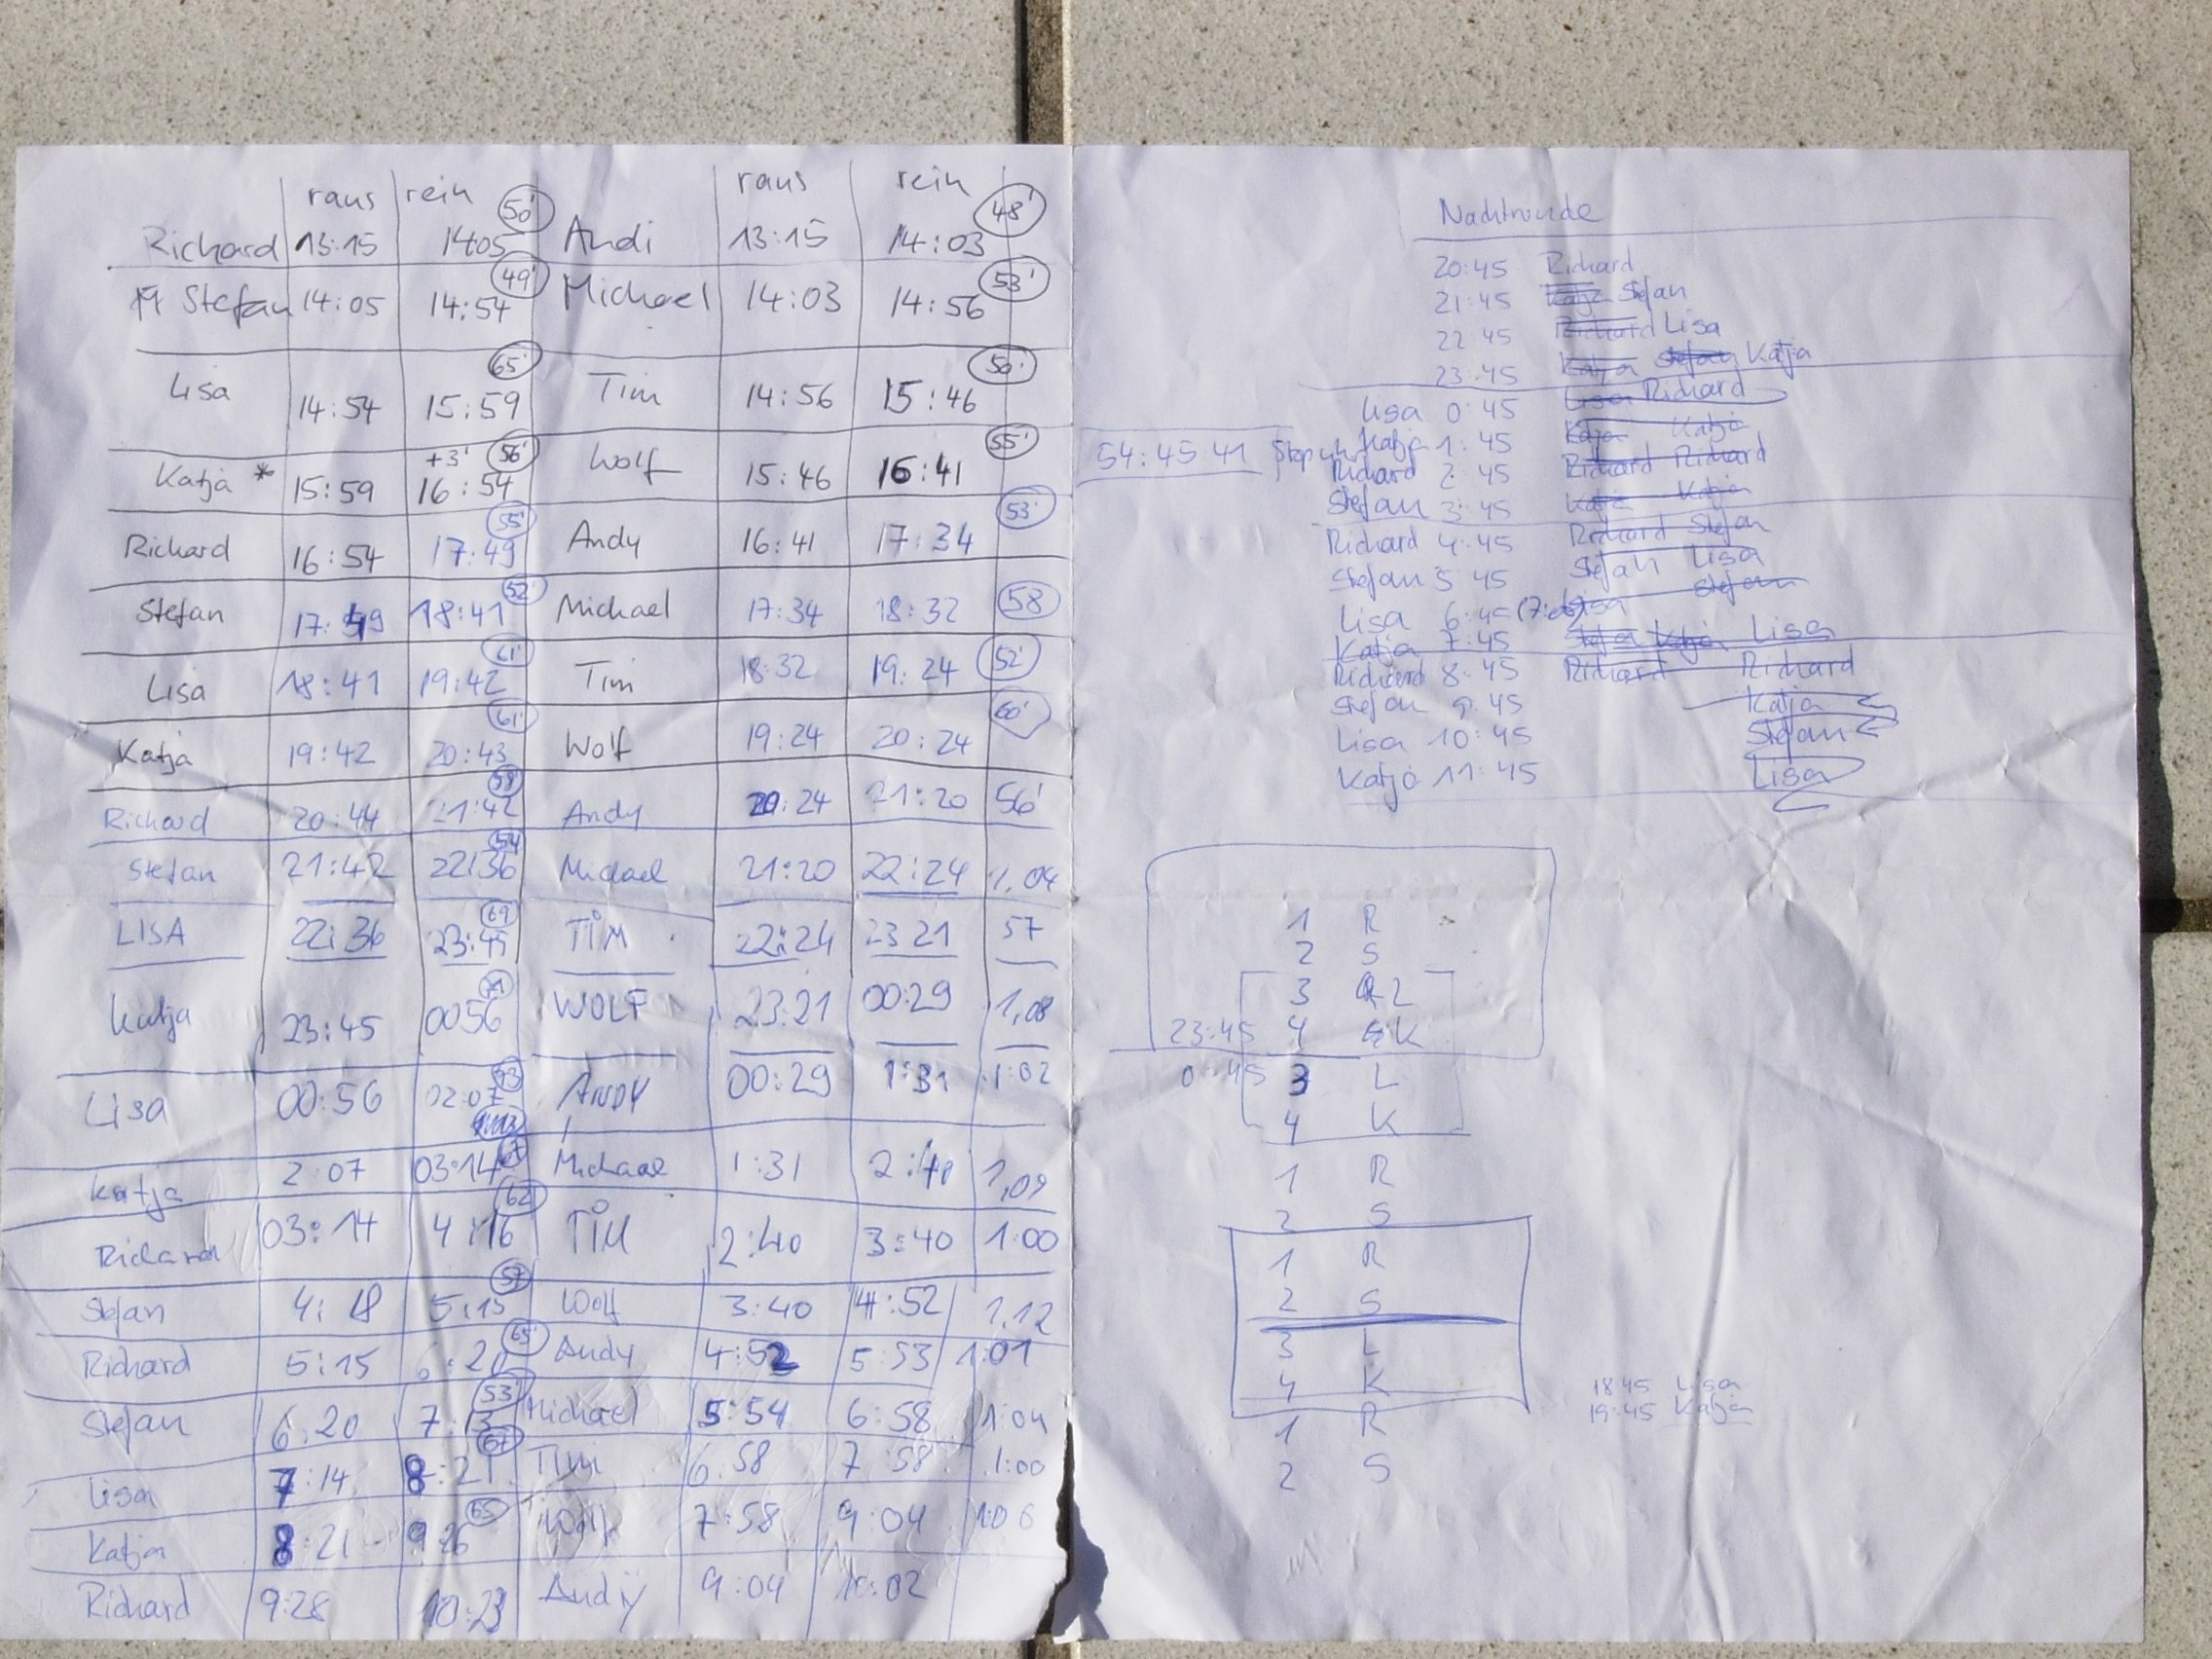 raus rein raus rein
Richard 13:15 1405 50' Andi 13:15 14:03 48'
Stefan 14:05 14:54 49' Michael 14:03 14:56 53'
Lisa 14:54 15:59 65' Tim 14:56 15:46 50'
Katja * 15:59 +3' 16:54 56' Wolf 15:46 16:41 55'
Richard 16:54 17:49 55' Andy 16:41 17:34 53'
Stefan 17:49 18:41 52' Michael 17:34 18:32 58
Lisa 18:41 19:42 61' Tim 18:32 19:24 52'
Katja 19:42 20:43 61' Wolf 19:24 20:24 60'
Richard 20:44 21:42 58' Andy 20:24 21:20 56'
Stefan 21:42 22:36 54 Michael 21:20 22:24 1,04
LISA 22:36 23:45 69 TIM 22:24 23 21 57
Katja 23:45 0056 71 WOLF 23:21 00:29 1,08
Lisa 00:56 02:07 ANDY 00:29 1:31 1:02
Katja 2:07 03:14 67 Michael 1:31 2:40 1,09
Richard 03:14 4:16 62 TIM 2:40 3:40 1:00
Stefan 4:18 5:15 57 Wolf 3:40 4:52 1,12
Richard 5:15 6:20 65' Andy 4:52 5:53 1:01
Stefan 6:20 7:13 53' Michael 5:54 6:58 1:04
Lisa 7:14 8:21 67 Tim 6:58 7:58 1:00
Katja 8:21 9:26 65 Wolf 7:58 9:04 1:06
Richard 9:28 10:23 Andy 9:04 10:02
Nachtrunde
20:45 Richard
21:45 Katja Stefan
22 45 Richard Lisa
23:45 Katja Stefan Katja
Lisa 0:45 Lisa Richard
54:45 41 Stopuhr Katja 1:45 Katja Katja
Richard 2:45 Richard Richard
Stefan 3:45 Katja Katja
Richard 4:45 Richard Stefan
Stefan 5 45 Stefan Lisa
Lisa 6:45 Lisa Stefan
Katja 7:45 Stefan Katja Lisa
Richard 8:45 Richard Richard
Stefan 9:45 Katja
Lisa 10:45 Stefan
Katja 11:45 Lisa
1 R
2 S
3 L
23:45 4 K
0:45 3 L
4 K
1 R
2 S
1 R
2 S
3 L
4 K
18 45 Lisa
19:45 Katja
1 R
2 S